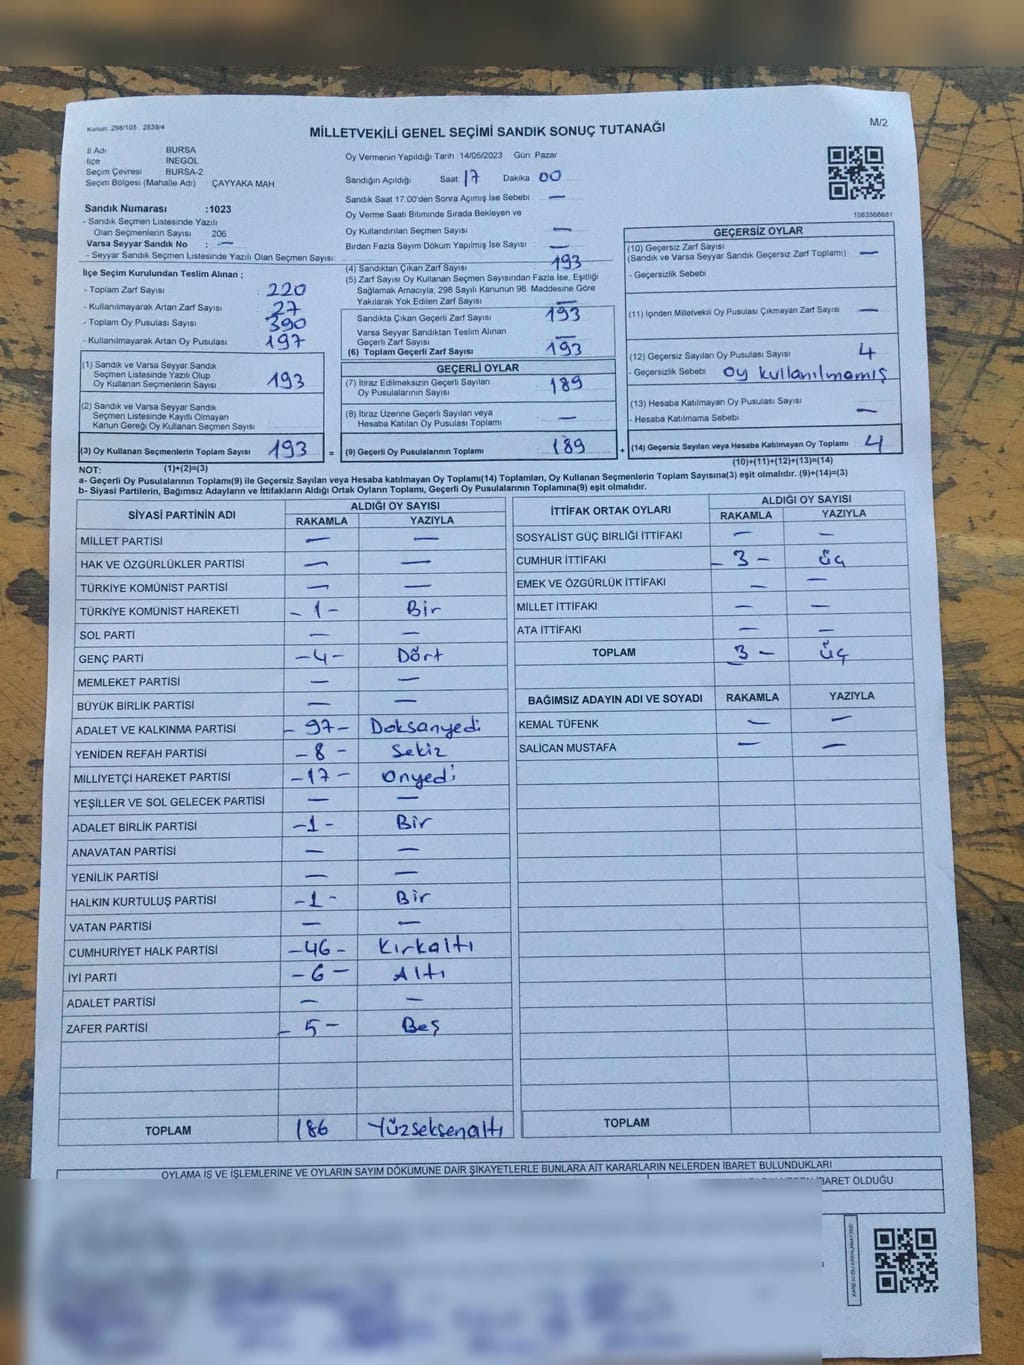 Kanun: 298/105 , 2839/4
MİLLETVEKİLİ GENEL SEÇİMİ SANDIK SONUÇ TUTANAĞI
M/2
İl Adı BURSA
İlçe İNEGÖL
Seçim Çevresi BURSA-2
Seçim Bölgesi (Mahalle Adı) ÇAYYAKA MAH.
Sandık Numarası :1023
- Sandık Seçmen Listesinde Yazılı
Olan Seçmenlerin Sayısı 206
Varsa Seyyar Sandık No : —
- Seyyar Sandık Seçmen Listesinde Yazılı Olan Seçmen Sayısı:
Oy Vermenin Yapıldığı Tarih :14/05/2023 Gün: Pazar
Sandığın Açıldığı Saat: 17 Dakika 00
Sandık Saat 17.00'den Sonra Açımış İse Sebebi —
Oy Verme Saati Bitiminde Sırada Bekleyen ve
Oy Kullandırılan Seçmen Sayısı —
Birden Fazla Sayım Döküm Yapılmış İse Sayısı —
1083566681
İlçe Seçim Kurulundan Teslim Alınan ;
- Toplam Zarf Sayısı 220
- Kullanılmayarak Artan Zarf Sayısı 27
- Toplam Oy Pusulası Sayısı 390
- Kullanılmayarak Artan Oy Pusulası 197
(1) Sandık ve Varsa Seyyar Sandık
Seçmen Listesinde Yazılı Olup
Oy Kullanan Seçmenlerin Sayısı 193
(2) Sandık ve Varsa Seyyar Sandık
Seçmen Listesinde Kayıtlı Olmayan
Kanun Gereği Oy Kullanan Seçmen Sayısı
(3) Oy Kullanan Seçmenlerin Toplam Sayısı 193 =
(1)+(2)=(3)
(4) Sandıktan Çıkan Zarf Sayısı 193
(5) Zarf Sayısı Oy Kullanan Seçmen Sayısından Fazla İse, Eşitliği
Sağlamak Amacıyla; 298 Sayılı Kanunun 98. Maddesine Göre
Yakılarak Yok Edilen Zarf Sayısı —
Sandıkta Çıkan Geçerli Zarf Sayısı 193
Varsa Seyyar Sandıktan Teslim Alınan
Geçerli Zarf Sayısı —
(6) Toplam Geçerli Zarf Sayısı 193
GEÇERLİ OYLAR
(7) İtiraz Edilmeksizin Geçerli Sayılan
Oy Pusulalarının Sayısı 189
(8) İtiraz Üzerine Geçerli Sayılan veya
Hesaba Katılan Oy Pusulası Toplamı —
(9) Geçerli Oy Pusulalarının Toplamı 189 +
GEÇERSİZ OYLAR
(10) Geçersiz Zarf Sayısı
(Sandık ve Varsa Seyyar Sandık Geçersiz Zarf Toplamı) —
- Geçersizlik Sebebi
(11) İçinden Milletvekili Oy Pusulası Çıkmayan Zarf Sayısı —
(12) Geçersiz Sayılan Oy Pusulası Sayısı 4
- Geçersizlik Sebebi Oy kullanılmamış
(13) Hesaba Katılmayan Oy Pusulası Sayısı
- Hesaba Katılmama Sebebi —
(14) Geçersiz Sayılan veya Hesaba Katılmayan Oy Toplamı 4
(10)+(11)+(12)+(13)=(14)
NOT:
a- Geçerli Oy Pusulalarının Toplamı(9) ile Geçersiz Sayılan veya Hesaba Katılmayan Oy Toplamı(14) Toplamları, Oy Kullanan Seçmenlerin Toplam Sayısına(3) eşit olmalıdır. (9)+(14)=(3)
b- Siyasi Partilerin, Bağımsız Adayların ve İttifakların Aldığı Ortak Oyların Toplamı, Geçerli Oy Pusulalarının Toplamına(9) eşit olmalıdır.
SİYASİ PARTİNİN ADI ALDIĞI OY SAYISI
RAKAMLA YAZIYLA
MİLLET PARTİSİ — —
HAK VE ÖZGÜRLÜKLER PARTİSİ — —
TÜRKİYE KOMÜNİST PARTİSİ — —
TÜRKİYE KOMÜNİST HAREKETİ -1- Bir
SOL PARTİ — —
GENÇ PARTİ -4- Dört
MEMLEKET PARTİSİ — —
BÜYÜK BİRLİK PARTİSİ — —
ADALET VE KALKINMA PARTİSİ -97- Doksanyedi
YENİDEN REFAH PARTİSİ -8- Sekiz
MİLLİYETÇİ HAREKET PARTİSİ -17- Onyedi
YEŞİLLER VE SOL GELECEK PARTİSİ — —
ADALET BİRLİK PARTİSİ -1- Bir
ANAVATAN PARTİSİ — —
YENİLİK PARTİSİ — —
HALKIN KURTULUŞ PARTİSİ -1- Bir
VATAN PARTİSİ — —
CUMHURİYET HALK PARTİSİ -46- Kırkaltı
İYİ PARTİ -6- Altı
ADALET PARTİSİ — —
ZAFER PARTİSİ -5- Beş
TOPLAM 186 Yüzseksenaltı
İTTİFAK ORTAK OYLARI ALDIĞI OY SAYISI
RAKAMLA YAZIYLA
SOSYALİST GÜÇ BİRLİĞİ İTTİFAKI — —
CUMHUR İTTİFAKI -3- Üç
EMEK VE ÖZGÜRLÜK İTTİFAKI — —
MİLLET İTTİFAKI — —
ATA İTTİFAKI — —
TOPLAM 3- Üç
BAĞIMSIZ ADAYIN ADI VE SOYADI RAKAMLA YAZIYLA
KEMAL TÜFENK — —
SALİCAN MUSTAFA — —
TOPLAM
OYLAMA İŞ VE İŞLEMLERİNE VE OYLARIN SAYIM DÖKÜMÜNE DAİR ŞİKAYETLERLE BUNLARA AİT KARARLARIN NELERDEN İBARET BULUNDUKLARI
İBARET OLDUĞU